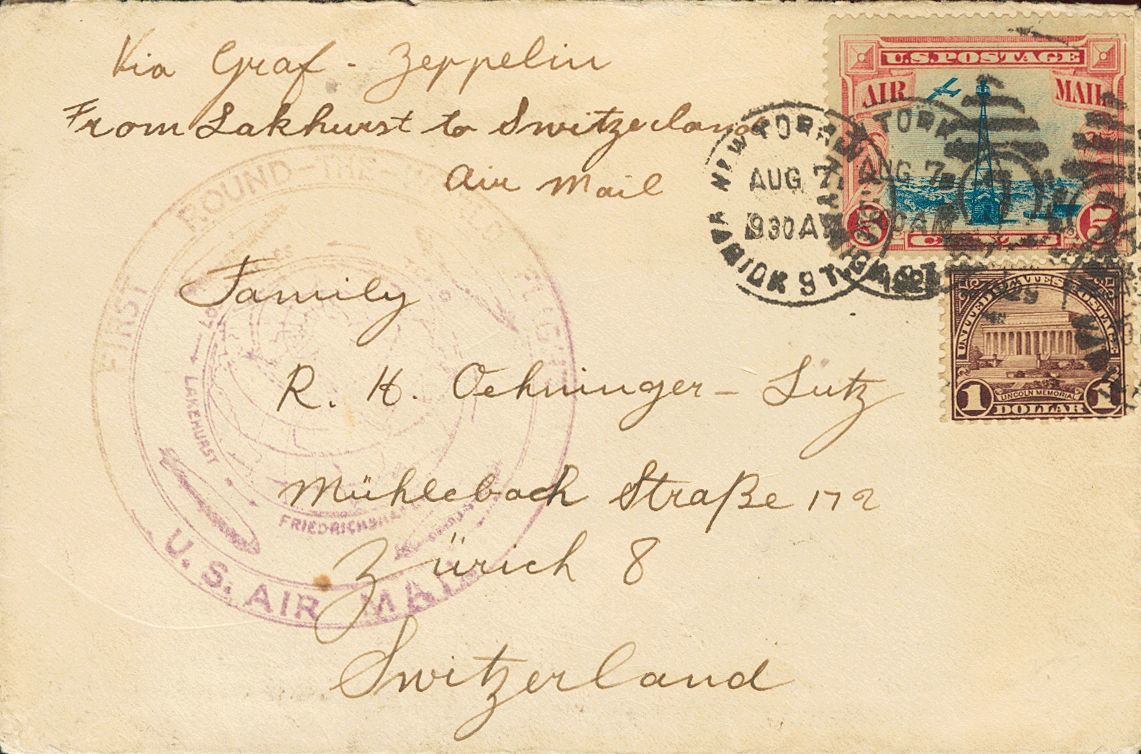 Via Graf - Zeppelin
From Lakhurst to Switzerland
Air Mail
Family
R. H. Oehninger - Lutz
Mühlebach Straße 172
Zürich 8
Switzerland
U.S. POSTAGE
AIR MAIL
5 5
UNITED STATES POSTAGE
LINCOLN MEMORIAL
1 1
DOLLAR
NEW YORK
AUG 7
930A
VARICK ST
AUG 7
1929
FIRST ROUND-THE-WORLD FLIGHT
LAKEHURST
FRIEDRICHSHAFEN
U.S. AIR MAIL